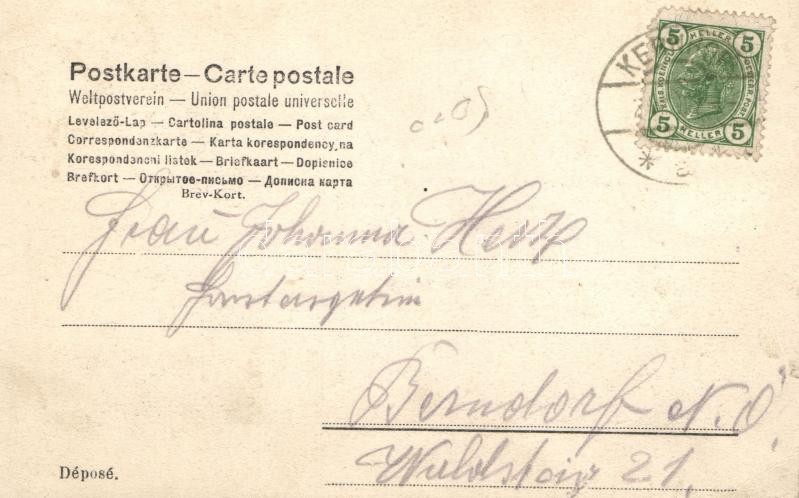 Postkarte — Carte postale
Weltpostverein — Union postale universelle
Levelező-Lap — Cartolina postale — Post card
Correspondenzkarte — Karta korespondencyjna
Korespondencni listek — Briefkaart — Dopisnice
Brefkort — Открытое-письмо — Дописна карта
Brev-Kort.
5 HELLER 5
5 HELLER 5
KE
Frau Johanna
Berndorf N. Ö.
21
Déposé.